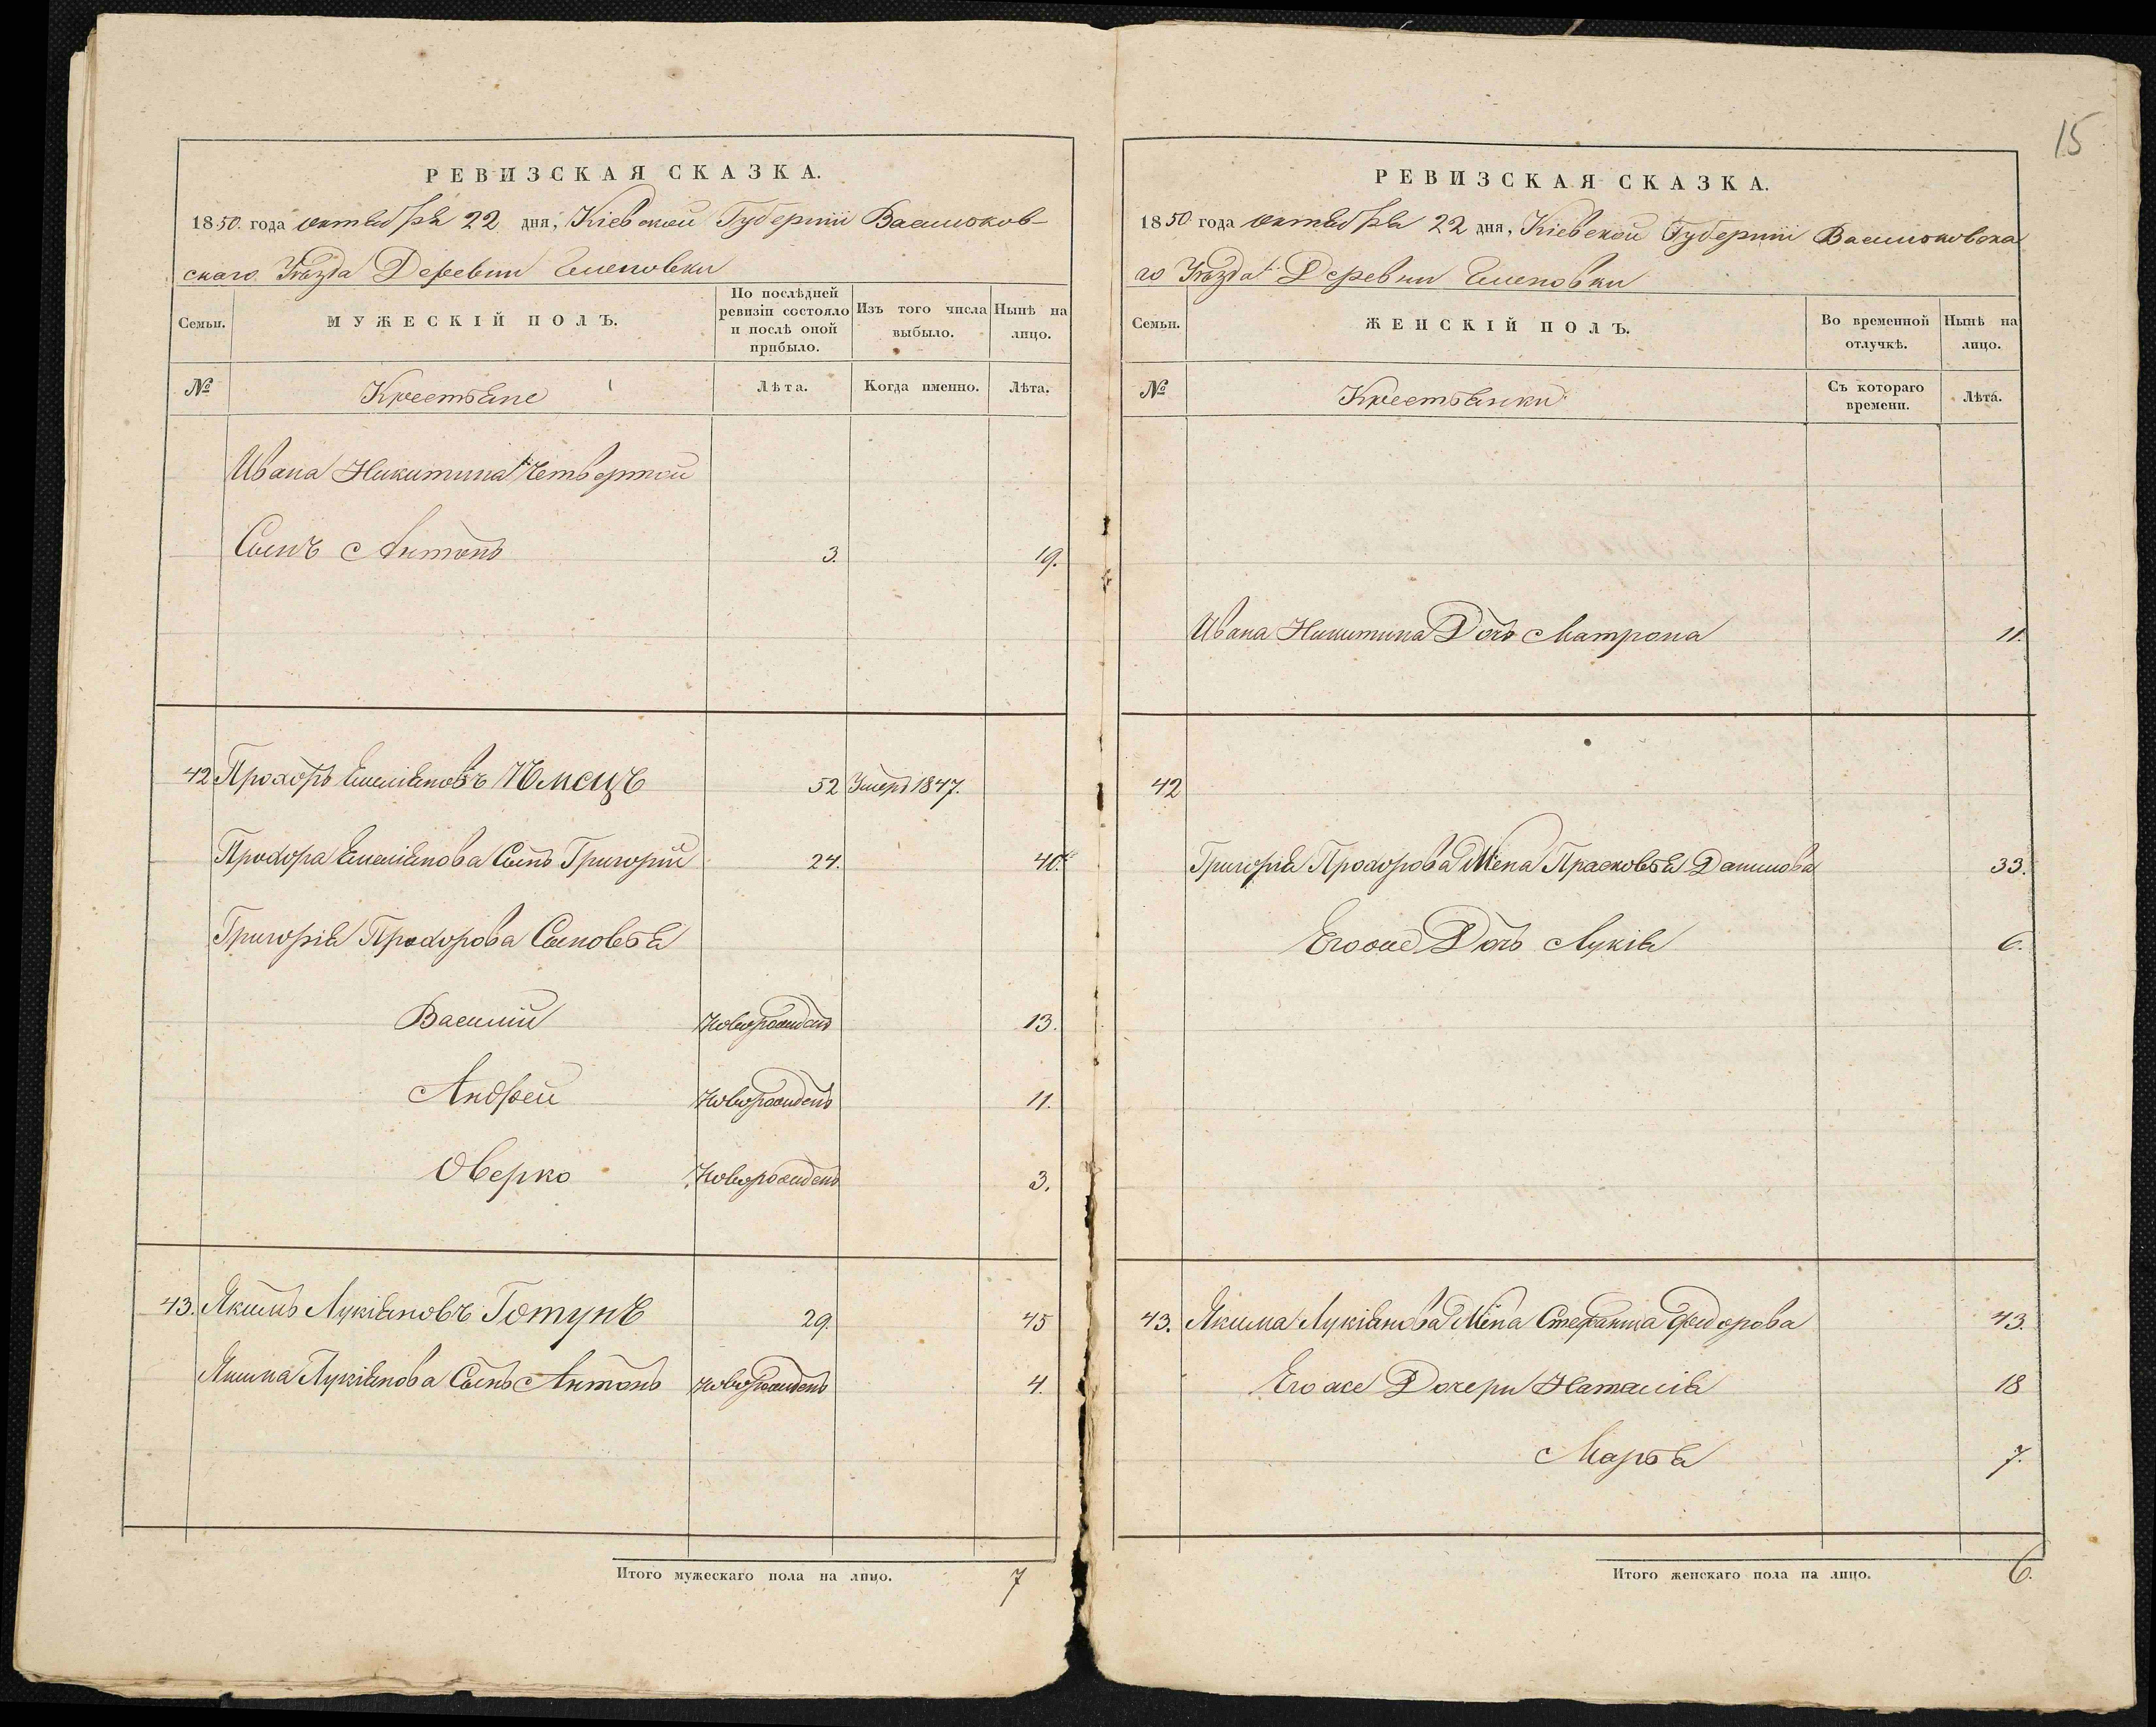 15
РЕВИЗСКАЯ СКАЗКА.
1850. года октября 22 дня, Кіевской Губерніи Васильков-
скаго Уѣзда Деревни Еленовки
Семьи.
МУЖЕСКІЙ ПОЛЪ.
По послѣдней ревизіи состояло и послѣ оной прибыло.
Изъ того числа выбыло.
Нынѣ на лицо.
№
Крестьяне
Лѣта.
Когда именно.
Лѣта.
Ивана Никитина 4 Четвертой
Сынъ Антонъ 3. 19.
42 Прохоръ Емеліяновъ Нѣмецъ 52 Умеръ 1847.
Прохора Емеліянова Сынъ Григорій 24. 40.
Григорія Прохорова Сыновья
Василій Новорожденъ 13.
Андрей Новорожденъ 11.
Оверко Новорожденъ 3.
43. Якимъ Лукіяновъ Готунъ 29. 45
Якима Лукіянова Сынъ Антонъ Новорожденъ 4.
Итого мужескаго пола на лицо. 7
РЕВИЗСКАЯ СКАЗКА.
1850 года октября 22 дня, Кіевской Губерніи Васильковска
го Уѣзда Деревни Еленовки
Семьи.
ЖЕНСКІЙ ПОЛЪ.
Во временной отлучкѣ.
Нынѣ на лицо.
№
Крестьянки
Съ котораго времени.
Лѣта.
Ивана Никитина Дочь Матрона 11.
42
Григорія Прохорова Жена Прасковья Данилова 33.
Его же Дочь Лукія 6.
43. Якима Лукіянова Жена Стефанида Федорова 43.
Его же Дочери Наталія 18
Марья 7.
Итого женскаго пола на лицо. 6.